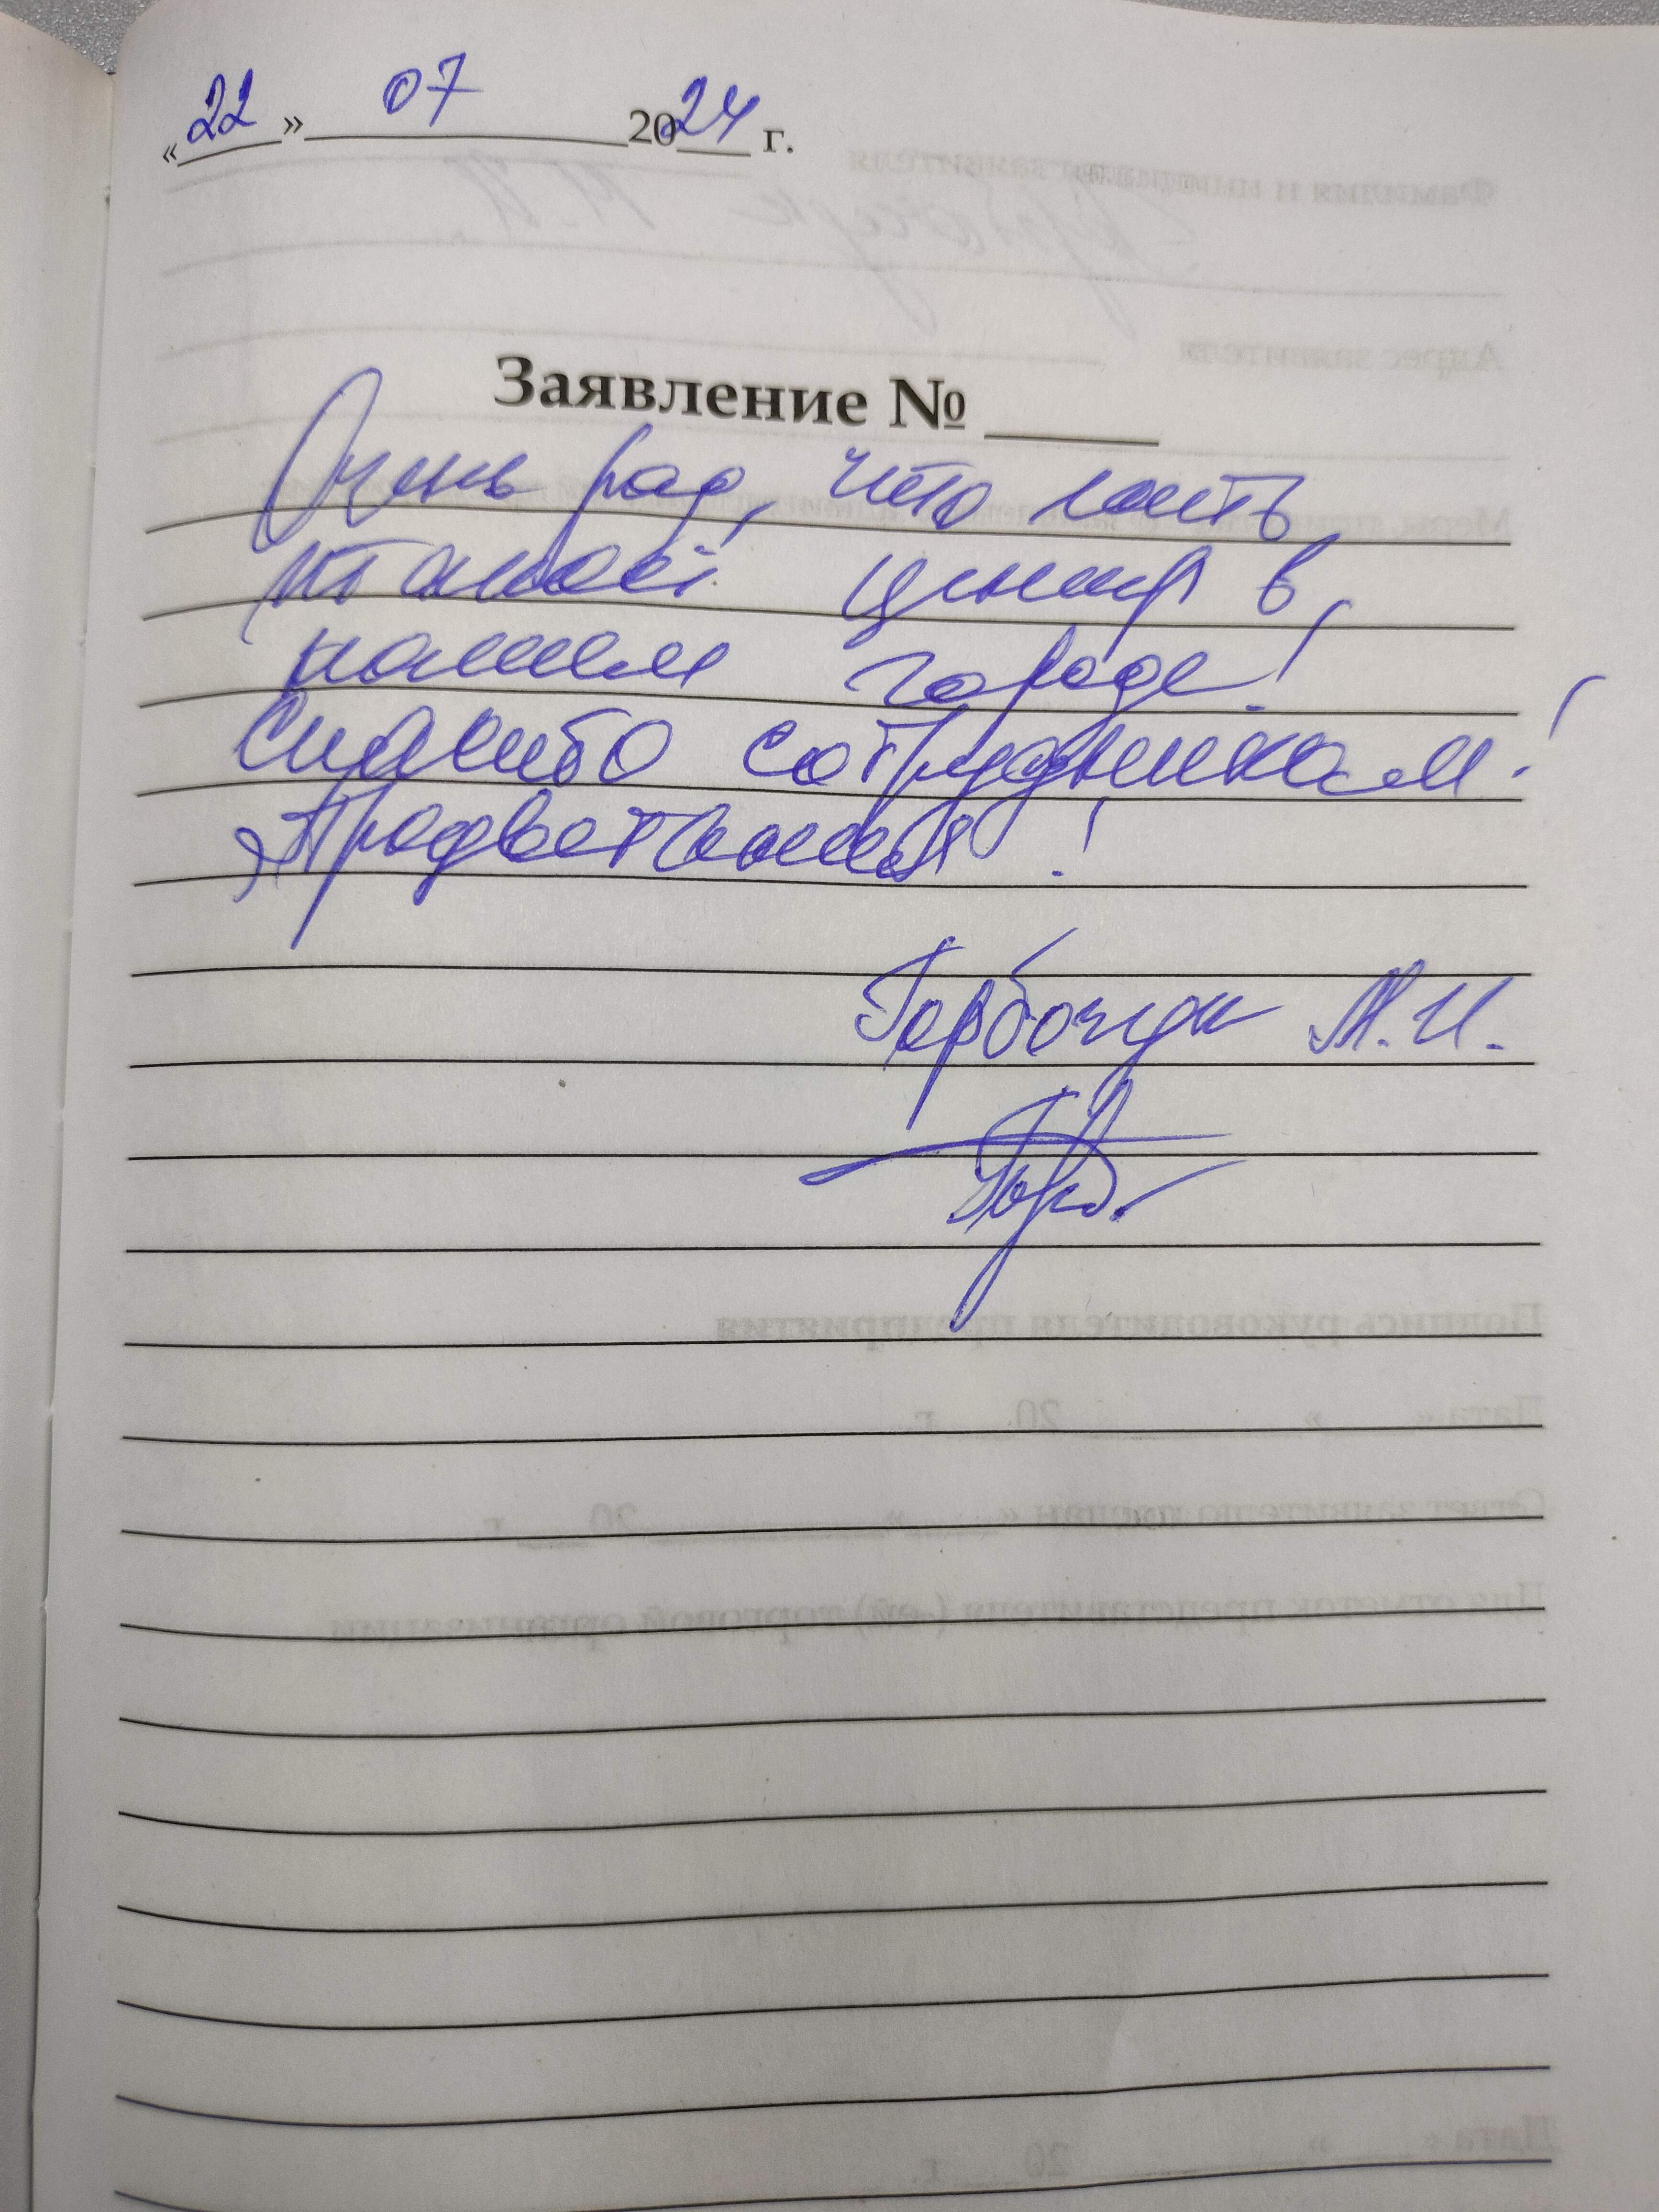 «22» 07 2024 г.
Заявление № ____
Очень рад, что есть
такой центр в
нашем городе!
Спасибо сотрудникам!
Процветания!
Горбачук М.И.
Горб.